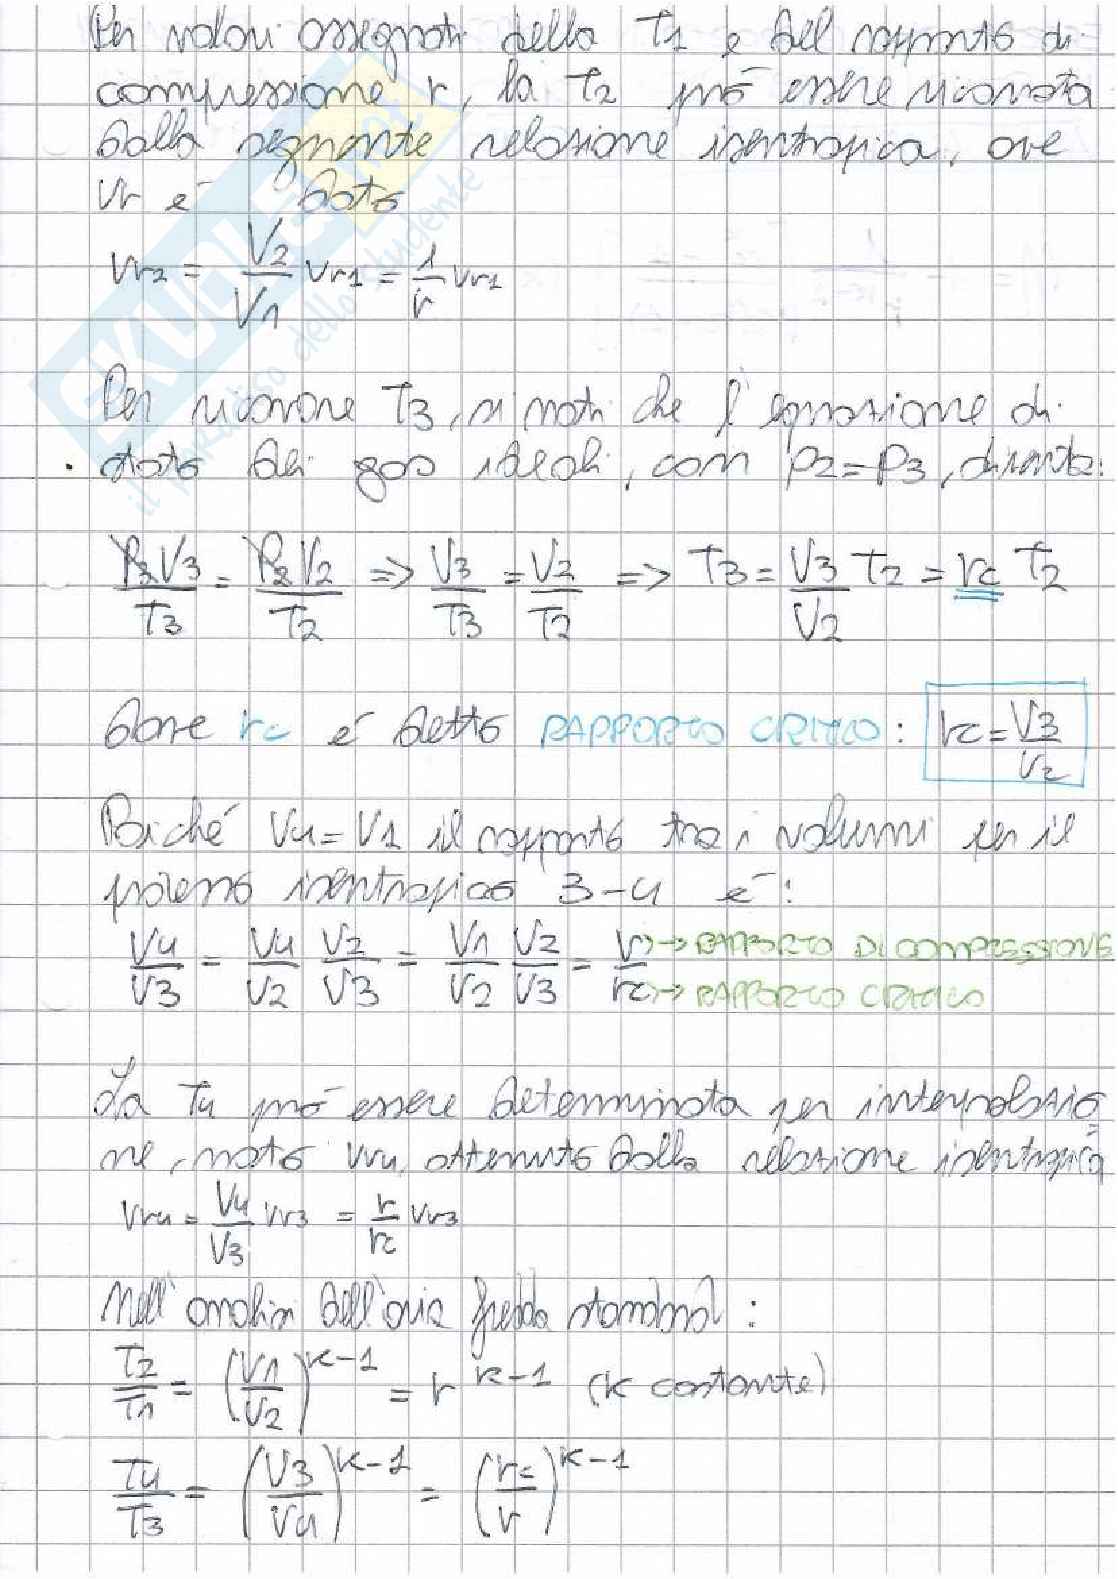 Per valori assegnati della T1 e del rapporto di
compressione r, la T2 può essere ricavata
dalla seguente relazione isentropica, ove
Vr è dato
Vr2 = V2/V1 Vr1 = 1/r Vr1
Per ricavare T3, si noti che l'equazione di
stato dei gas ideali, con P2=P3, diventa:
P3V3/T3 = P2V2/T2 => V3/T3 = V2/T2 => T3 = V3/V2 T2 = rc T2
dove rc è detto RAPPORTO CRITICO: rc = V3/V2
Poiché V4=V1 il rapporto tra i volumi per il
processo isentropico 3-4 è:
V4/V3 = V4/V2 V2/V3 = V1/V2 V2/V3 = r/rc
→ RAPPORTO DI COMPRESSIONE
→ RAPPORTO CRITICO
La T4 può essere determinata per interpolazio
ne, noto Vr4, ottenuto dalla relazione isentropica
Vr4 = V4/V3 Vr3 = r/rc Vr3
Nell'analisi dell'aria fredda standard:
T2/T1 = (V1/V2)^K-1 = r^K-1 (K costante)
T4/T3 = (V3/V4)^K-1 = (rc/r)^K-1
SKUOLA.net
il paradiso dello studente